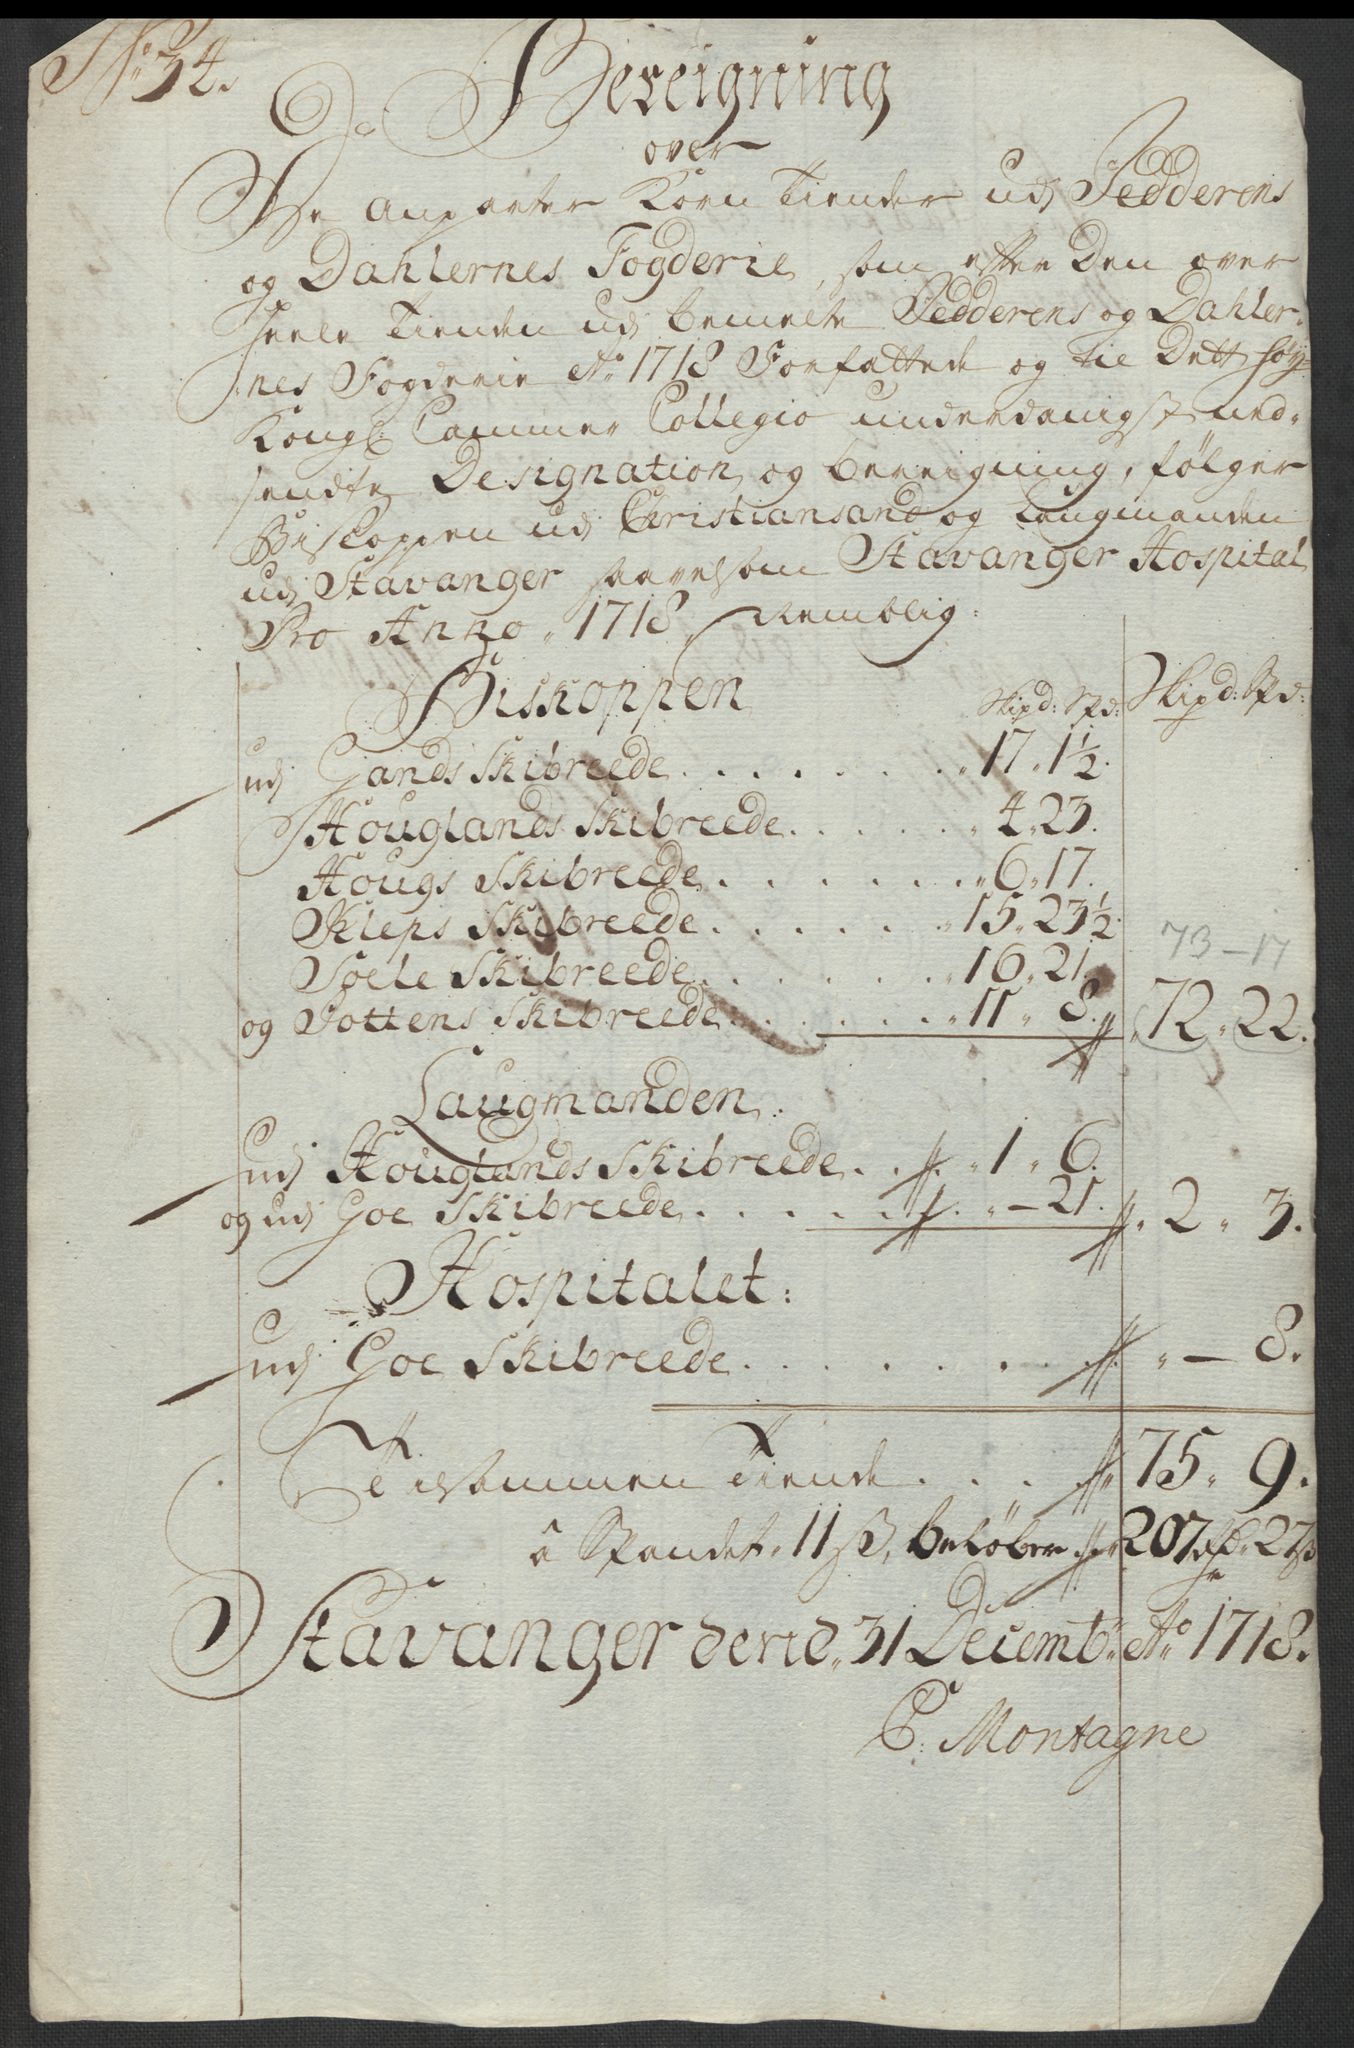 No 34.
Bereigning
over
De anparter Korn Tiender udj Jedderens
og Dahlernes Fogderie, som efter den over
heele Tienden udj bemelte Jedderens og Dahler-
nes Fogderie Ao 1718 Forfattede og til Dett høy
Kongl: Cammer Collegio underdanigst ned-
sendte Designation og bereigning, følger
Biskoppen udj Christiansand og Laugmanden
udj Stavanger saavelsom Stavanger Hospital
Pro Anno 1718, Nemblig:
Biskoppen Skipd: Spd: Skipd: Spd:
udj Gands Skibreede . . . . . . . 17 " 1½.
Houglands Skibreede . . . . . . 4 " 23.
Hougs Skibreede . . . . . . . 6 " 17.
Kleps Skibreede . . . . . . . 15 " 23½. 73 – 17
Soele Skibreede . . . . . . . 16 " 21.
og Tottens Skibreede . . . . . . 11 " 8. 72 " 22.
Laugmanden:
udj Houglands Skibreede . . 1 " 6.
og udj Goe Skibreede . . . . . " – 21. 2 " 3.
Hospitalet:
udj Goe Skibreede . . . . . . . " – 8.
Tilsammen Tiende . . . 75 " 9.
â Spandet 11 ß, beløber 207 rd " 27 ß
Stavanger dend 31 Decembr Ao 1718.
P: Montagne